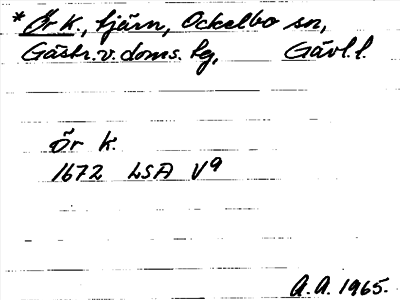 * Ör K., tjärn, Ockelbo sn,
Gästr. v. doms. tg, Gävl. l.
Ör K.
1672 LSA V9
A. A. 1965.